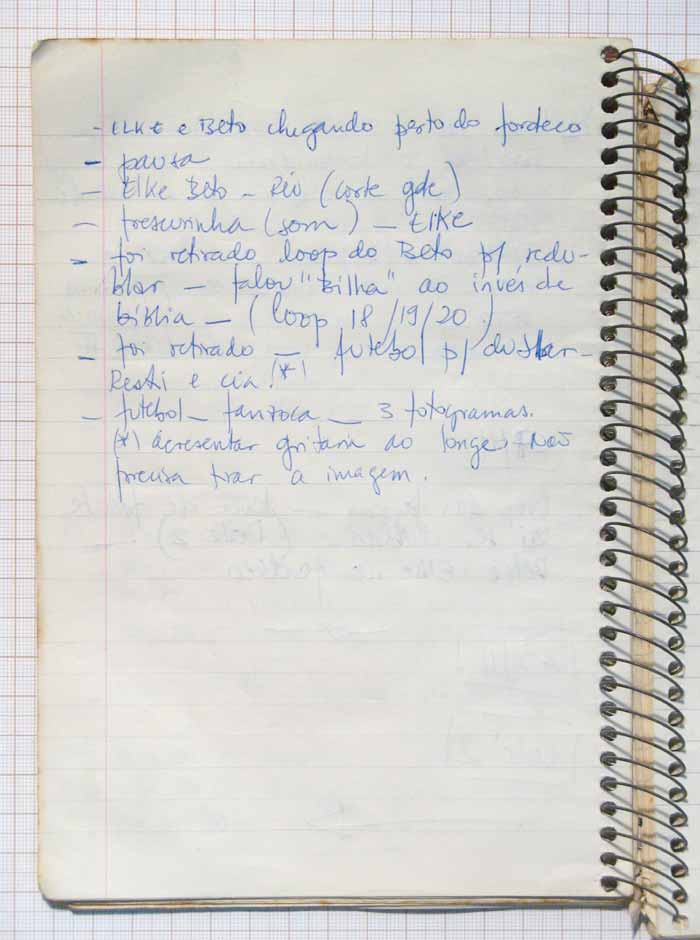 - ELKE e Beto chegando perto do fordeco
- pausa
- Elke Beto - Rio (corte gde)
- frescurinha (som) - ELKE
- foi retirado loop do Beto p/ redu-
blar - falou "Bilha" ao invés de
bíblia - (loop 18/19/20)
- foi retirado - futebol p/ dublar -
Resti e cia. (*)
- futebol - fanzoca - 3 fotogramas.
(*) acresentar gritaria ao longe. Não
precisa tirar a imagem.